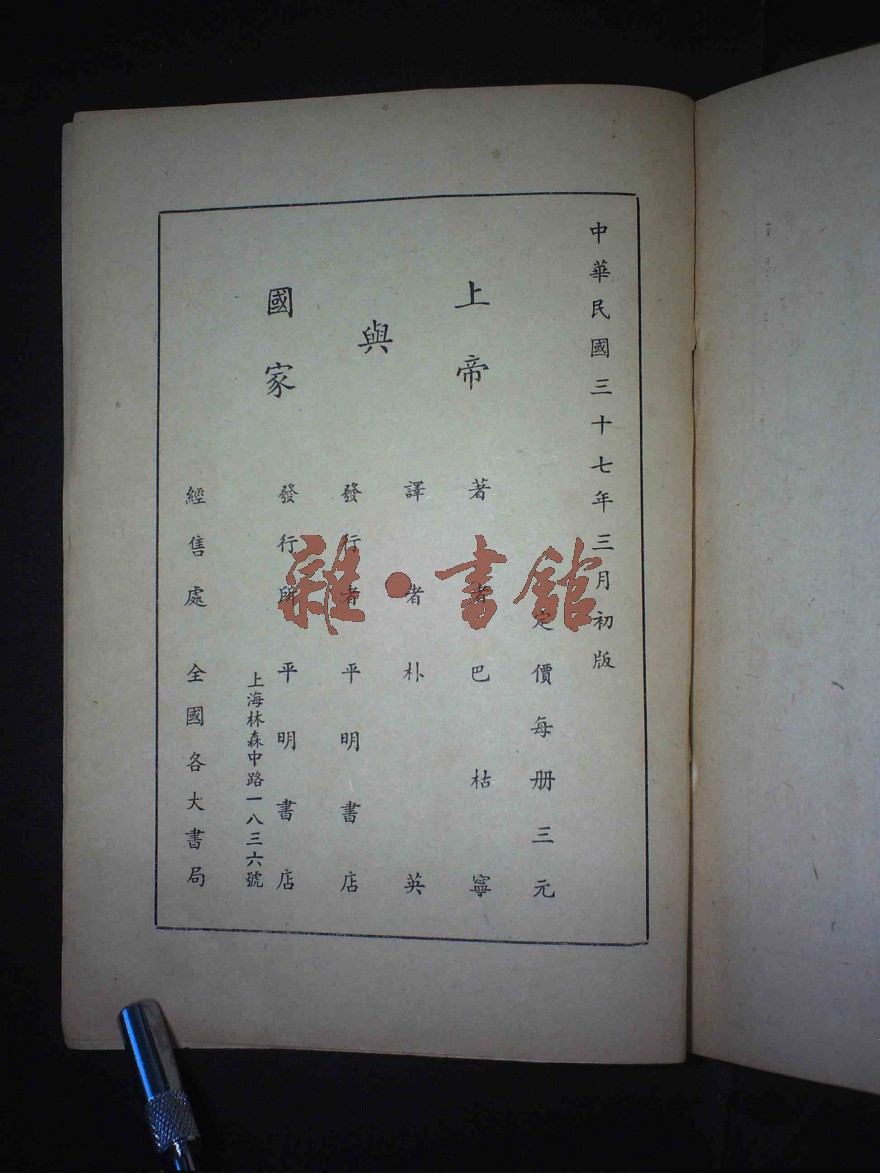 中華民國三十七年三月初版
定價每册三元
上帝
與
國家
著者巴枯寧
譯者朴英
發行者平明書店
發行所平明書店
上海林森中路一八三六號
經售處全國各大書局
雜·書館